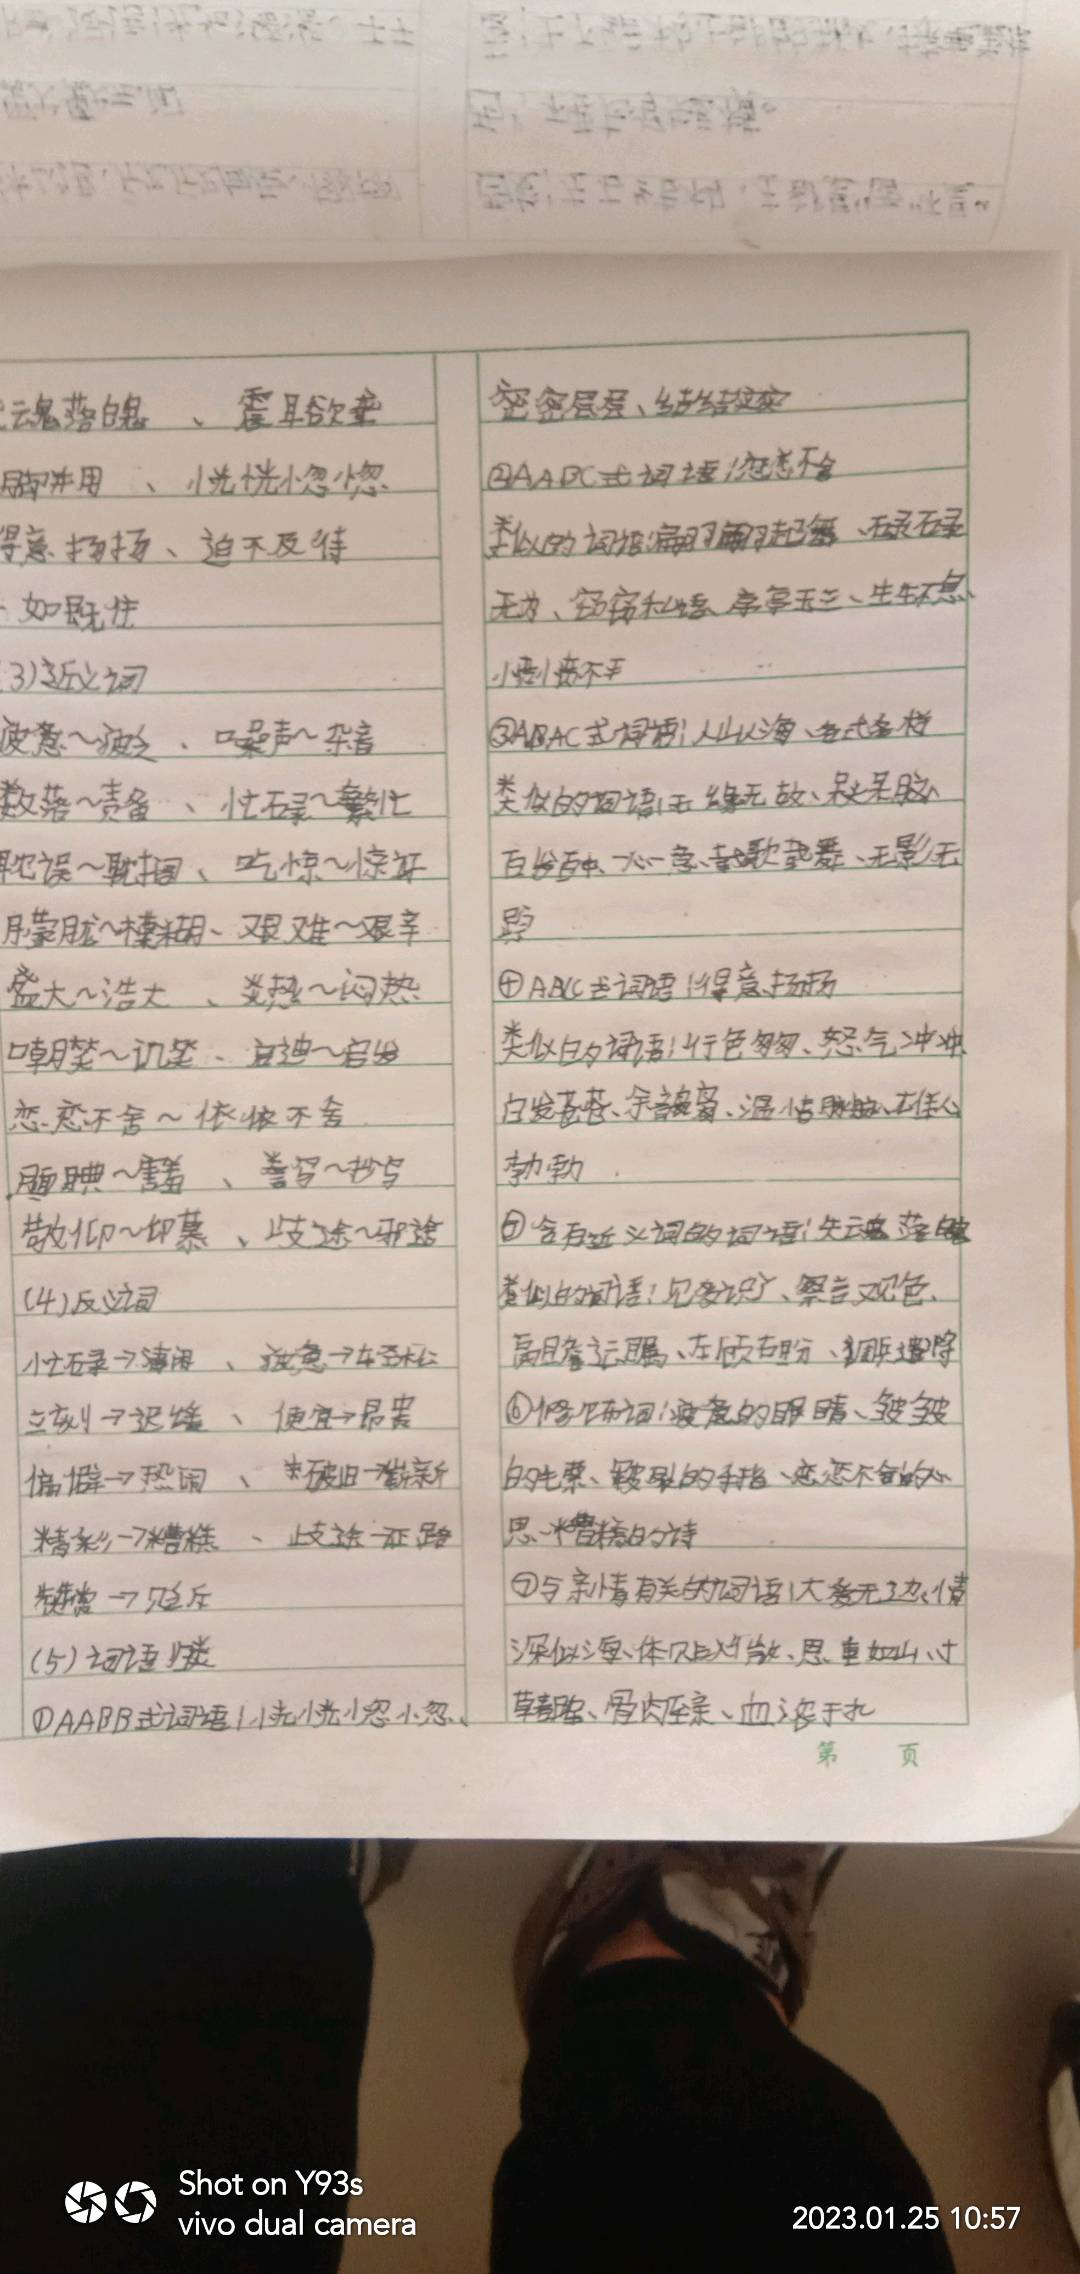 魂落魄、震耳欲聋
用、恍恍惚惚
得意扬扬、迫不及待
如既往
(3)近义词
疲惫~疲乏、噪声~杂音
数落~责备、忙碌~繁忙
耽误~耽搁、吃惊~惊讶
朦胧~模糊、艰难~艰辛
盛大~浩大、炎热~闷热
嘲笑~讥笑、启迪~启发
恋恋不舍~依依不舍
腼腆~害羞、誊写~抄写
敬仰~仰慕、歧途~邪途
(4)反义词
忙碌→清闲、疲惫→轻松
立刻→迟缓、便宜→昂贵
偏僻→热闹、破旧→崭新
精彩→糟糕、歧途→正路
赞赏→贬斥
(5)词语归类
①AABB式词语:恍恍惚惚、
密密层层、结结实实
②AABC式词语:恋恋不舍
类似的词语:翩翩起舞、碌碌
无为、窃窃私语、亭亭玉立、生生不息、
愤愤不平
③ABAC式词语:人山人海、各式各样
类似的词语:无缘无故、呆头呆脑、
百发百中、一心一意、载歌载舞、无影无
踪
④ABCC式词语:得意扬扬
类似的词语:行色匆匆、怒气冲冲
白发苍苍、余音袅袅、温情脉脉、雄心
勃勃
⑤含有近义词的词语:失魂落魄
类似的词语:见多识广、察言观色、
高瞻远瞩、左顾右盼、调兵遣将
⑥修饰词:疲惫的眼睛、皱皱
的毛票、皲裂的手指、恋恋不舍的心
思、糟糕的诗
⑦与亲情有关的词语:大爱无边、情
深似海、体贴入微、恩重如山、寸
草春晖、骨肉至亲、血浓于水
第 页
Shot on Y93s
vivo dual camera
2023.01.25 10:57